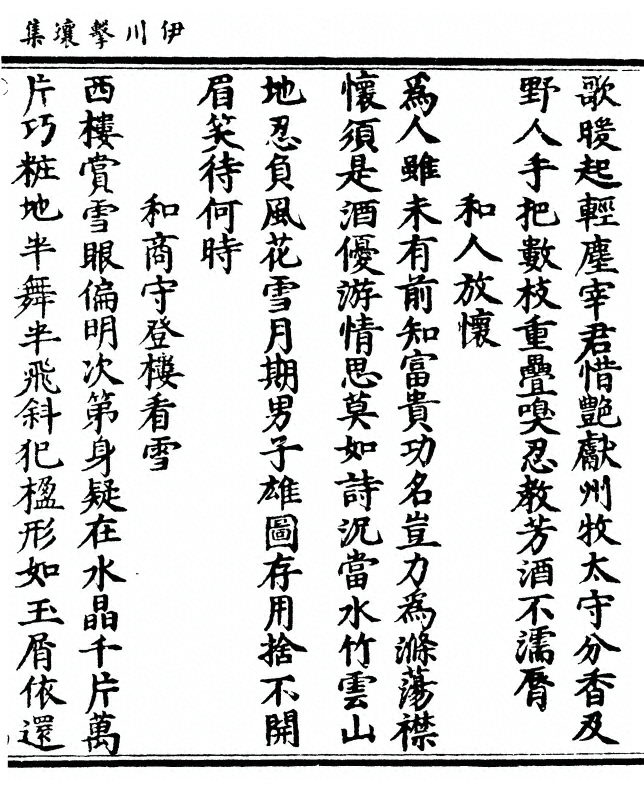 伊川擊壤集
歌暖起輕塵宰君惜艷獻州牧太守分香及
野人手把數枝重疊嗅忍教芳酒不濡脣
和人放懷
爲人雖未有前知富貴功名豈力爲滌蕩襟
懷須是酒優游情思莫如詩況當水竹雲山
地忍負風花雪月期男子雄圖存用捨不開
眉笑待何時
和商守登樓看雪
西樓賞雪眼偏明次第身疑在水晶千片萬
片巧粧地半舞半飛斜犯楹形如玉屑依還